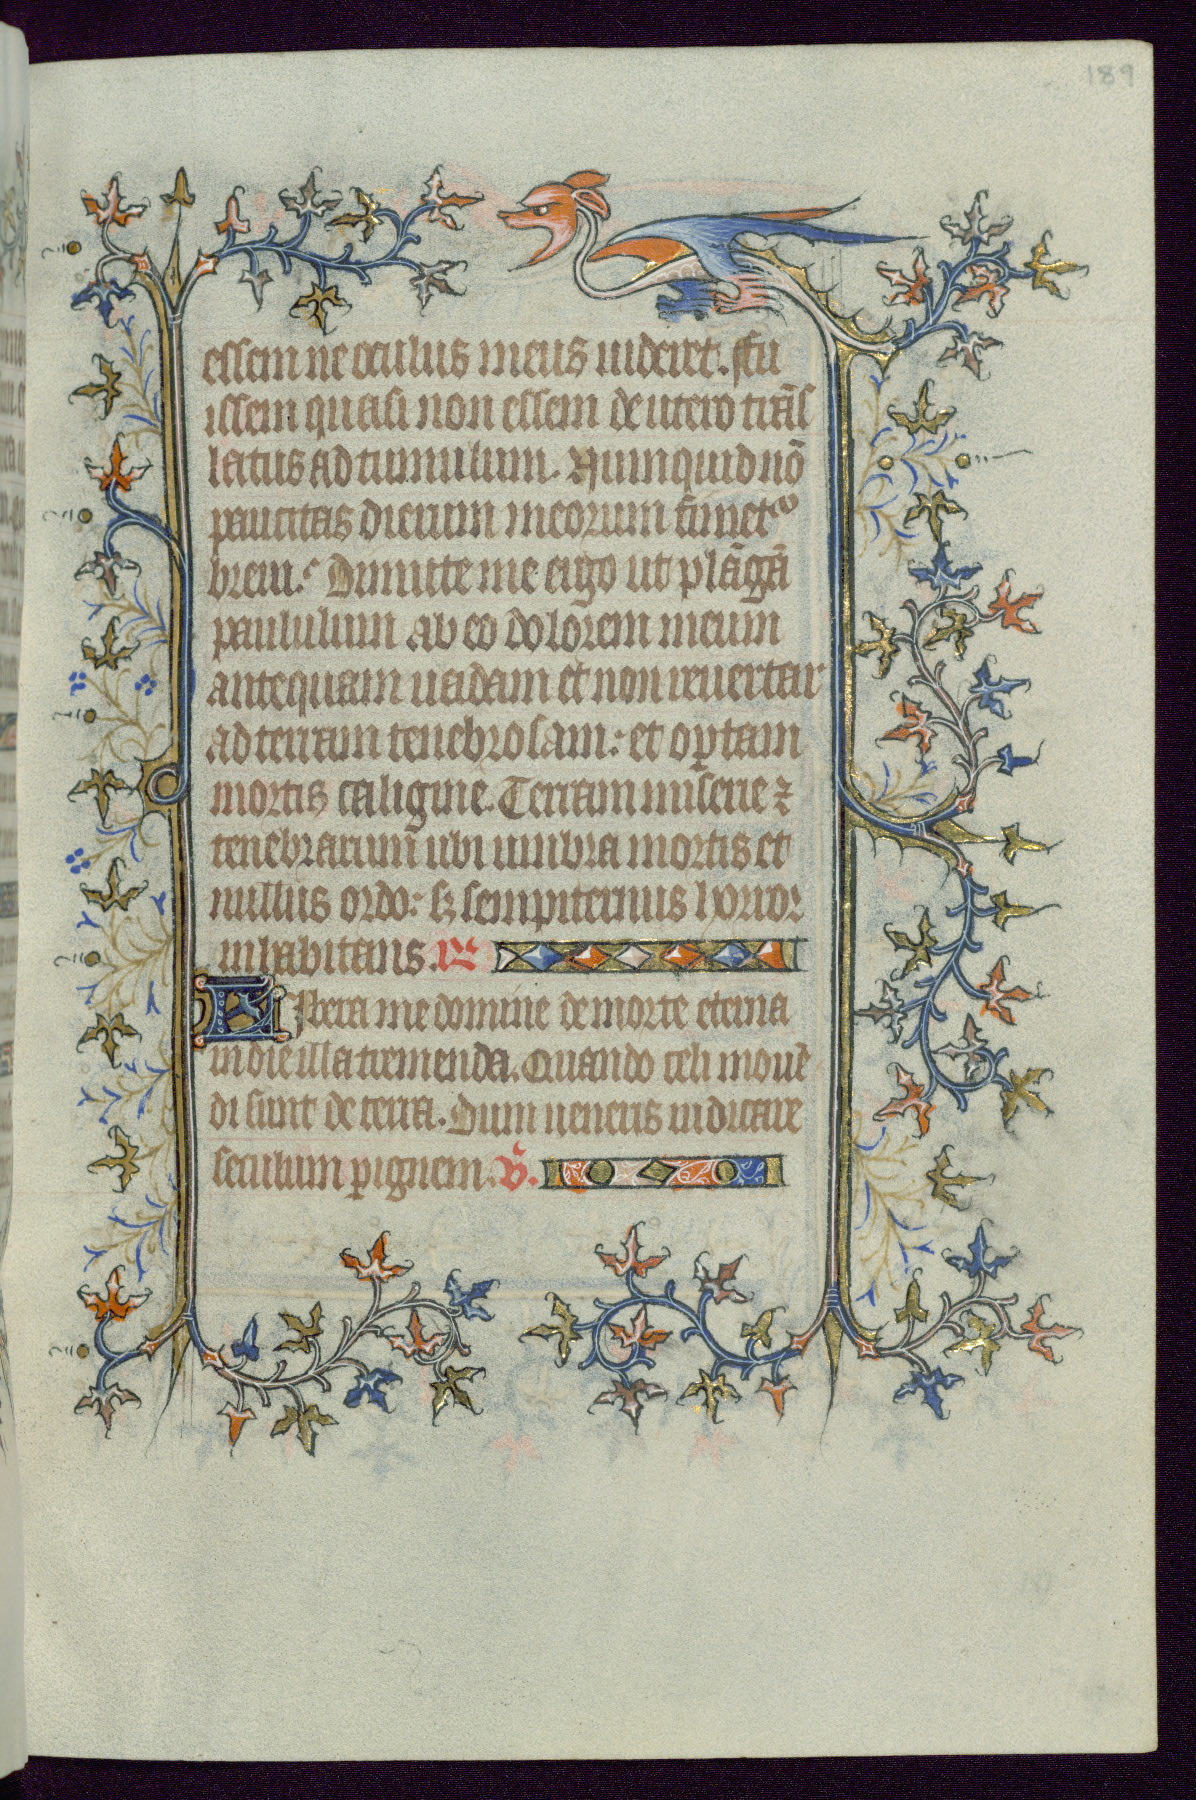 189
essem ne oculus meus uideret. Fu
issem quasi non essem de utero trãs
latus ad tumulum. Numquid nõ
paucitas dierum meorum finietᵒ
breui: Dimitte me ergo ut plãgã
paululum ab eo dolorem meum
antequam uadam et non reuertar
ad terram tenebrosam: et optam
mortis caligine. Terram miserie ⁊
tenebrarum ubi umbra mortis et
nullus ordo: sꝫ sempiternus horror
inhabitans. R
libera me domine de morte eterna
in die illa tremenda. Quando celi mouẽ
di sunt de terra. Dum ueneris iudicare
seculum p ignem. V̄.